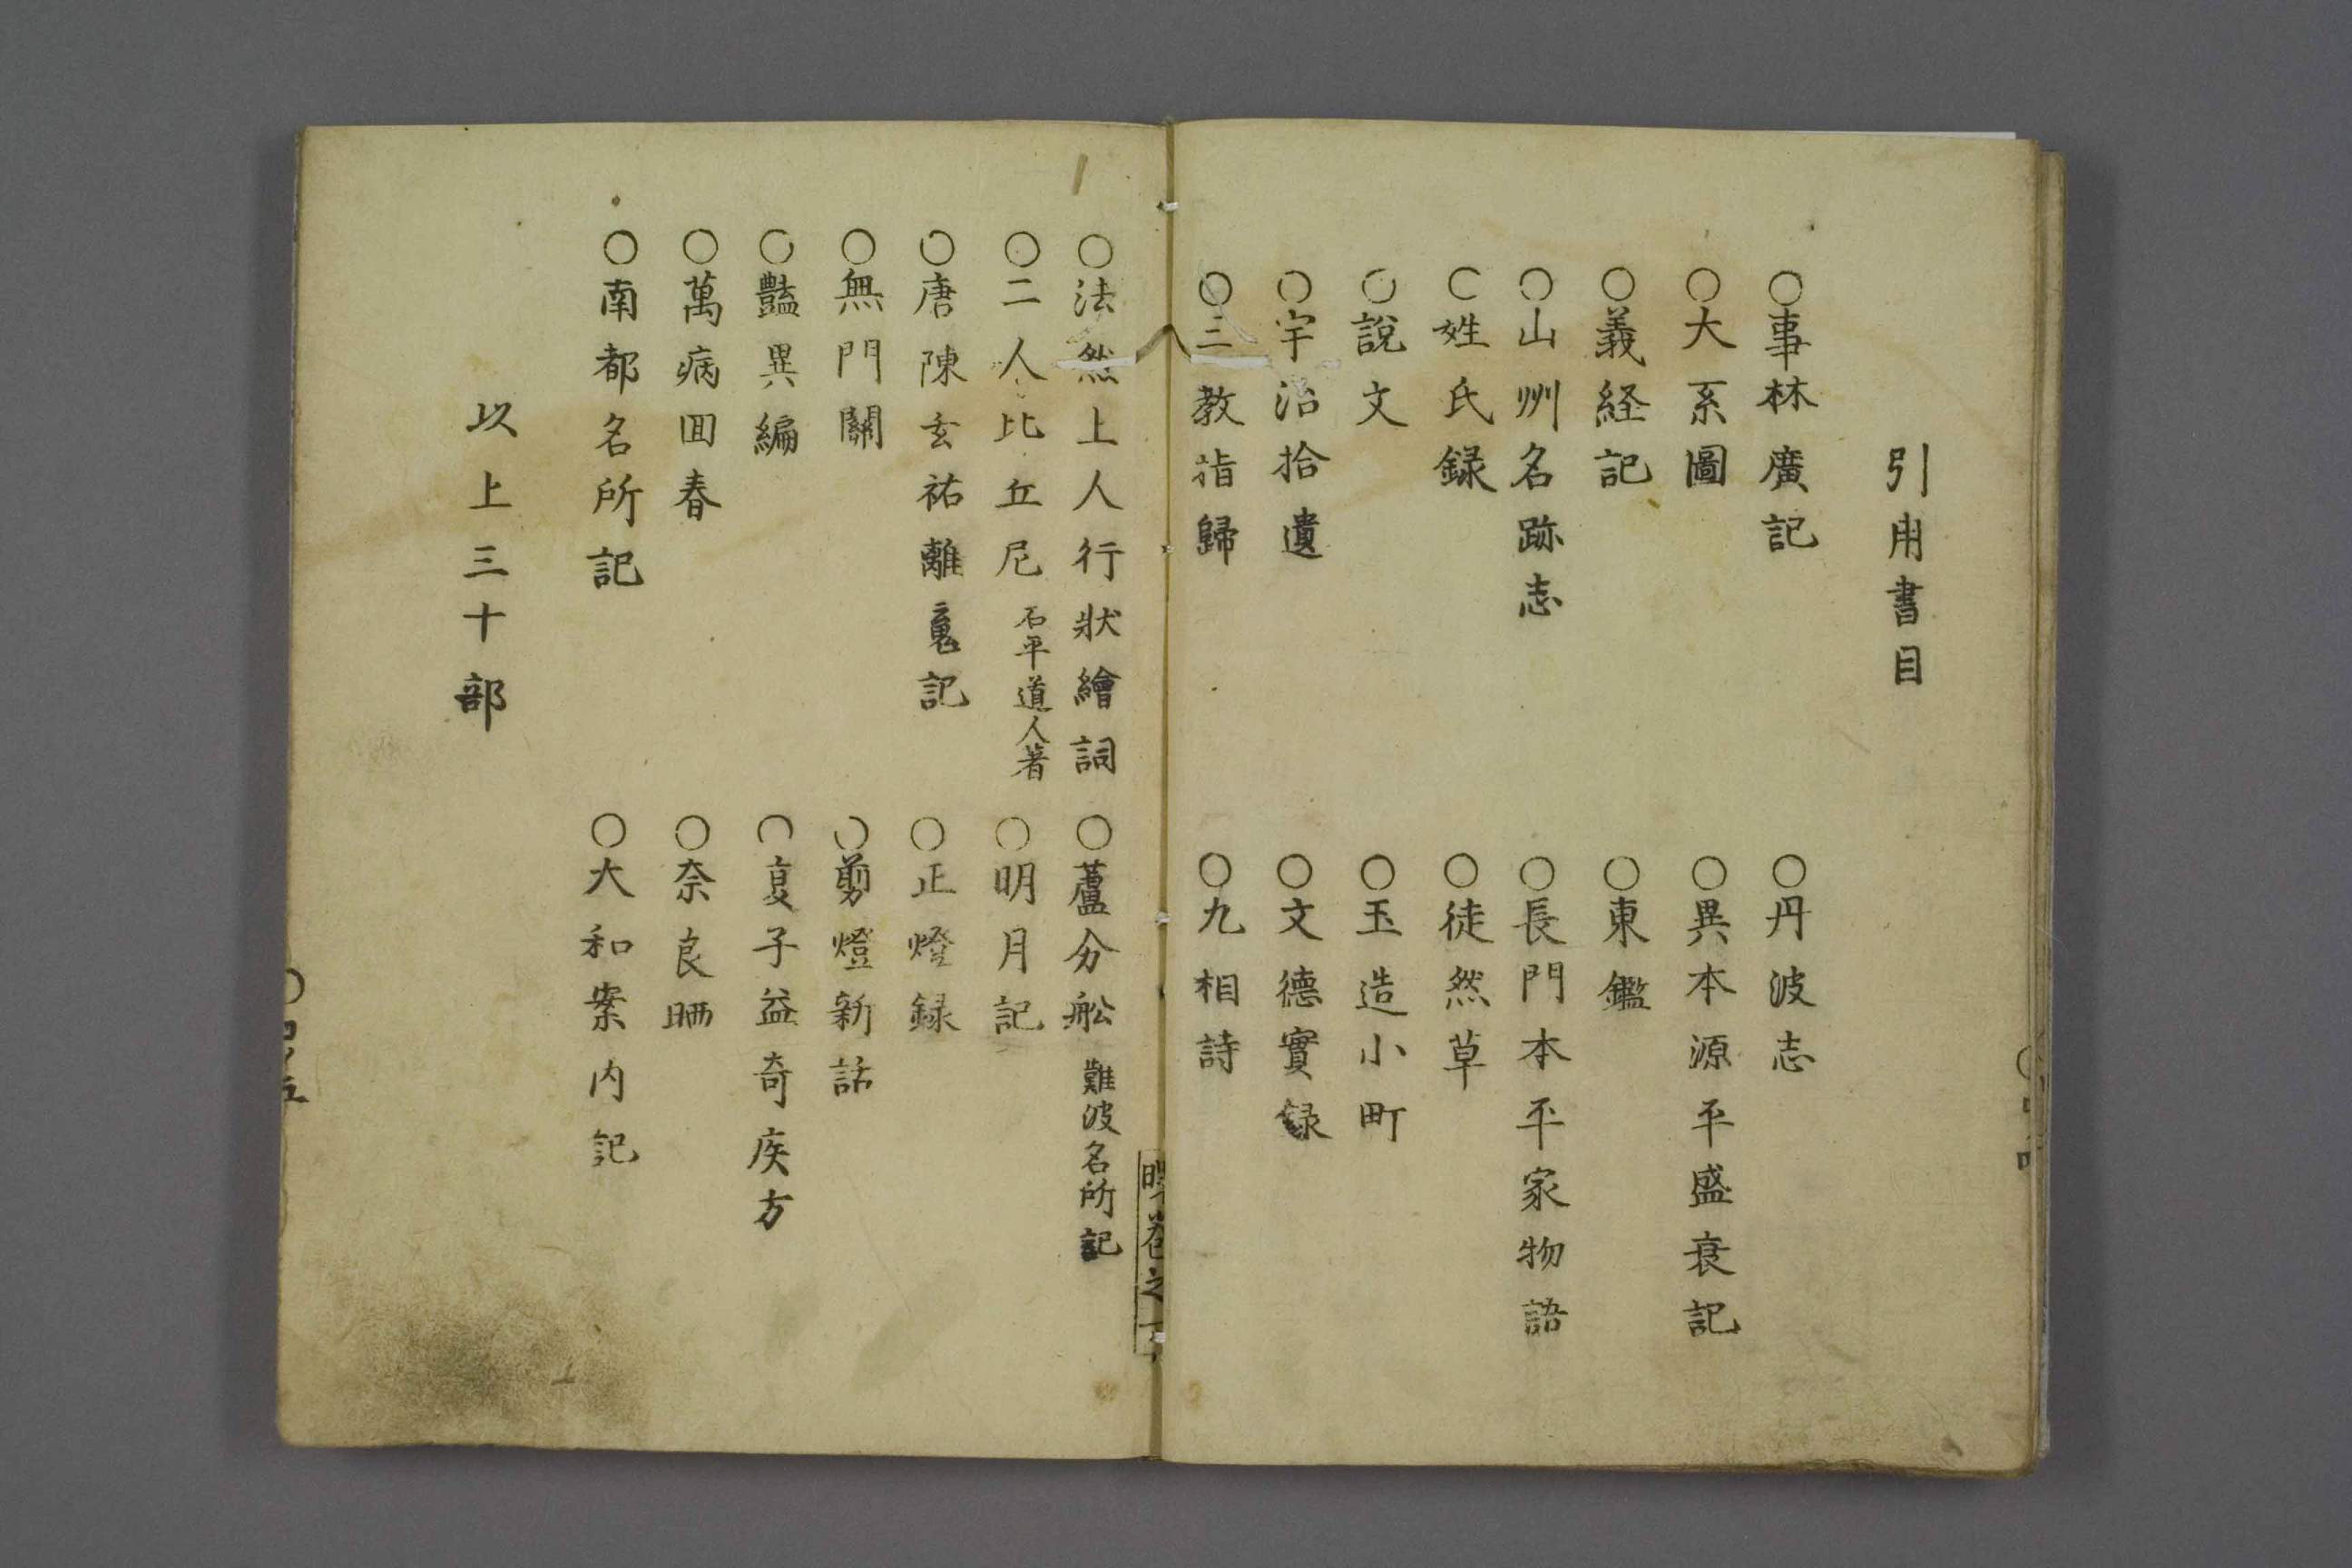 引用書目
○事林廣記　○丹波志
○大系圖　○異本源平盛衰記
○義経記　○東鑑
○山州名跡志　○長門本平家物語
○姓氏録　○徒然草
○説文　○玉造小町
○宇治拾遺　○文德實録
○三教指歸　○九相詩
○法然上人行狀繪詞　○蘆分舩 難波名所記
○二人比丘尼 石平道人著　○明月記
○唐陳玄祐離䰟記　○正燈録
○無門關　○剪燈新話
○豔異編　○夏子益奇疾方
○萬病回春　○奈良晒
○南都名所記　○大和案内記
以上三十部